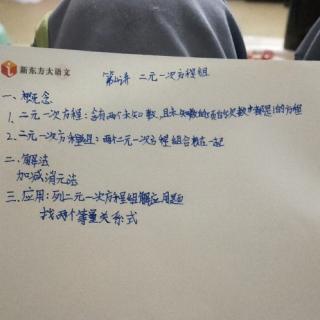 新东方大语文
第4讲 二元一次方程组
一、概念
1. 二元一次方程：含有两个未知数，且未知数的项的次数都是1的方程
2. 二元一次方程组：两个二元一次方程组合在一起
二、解法
加减消元法
三、应用：列二元一次方程组解应用题
找两个等量关系式